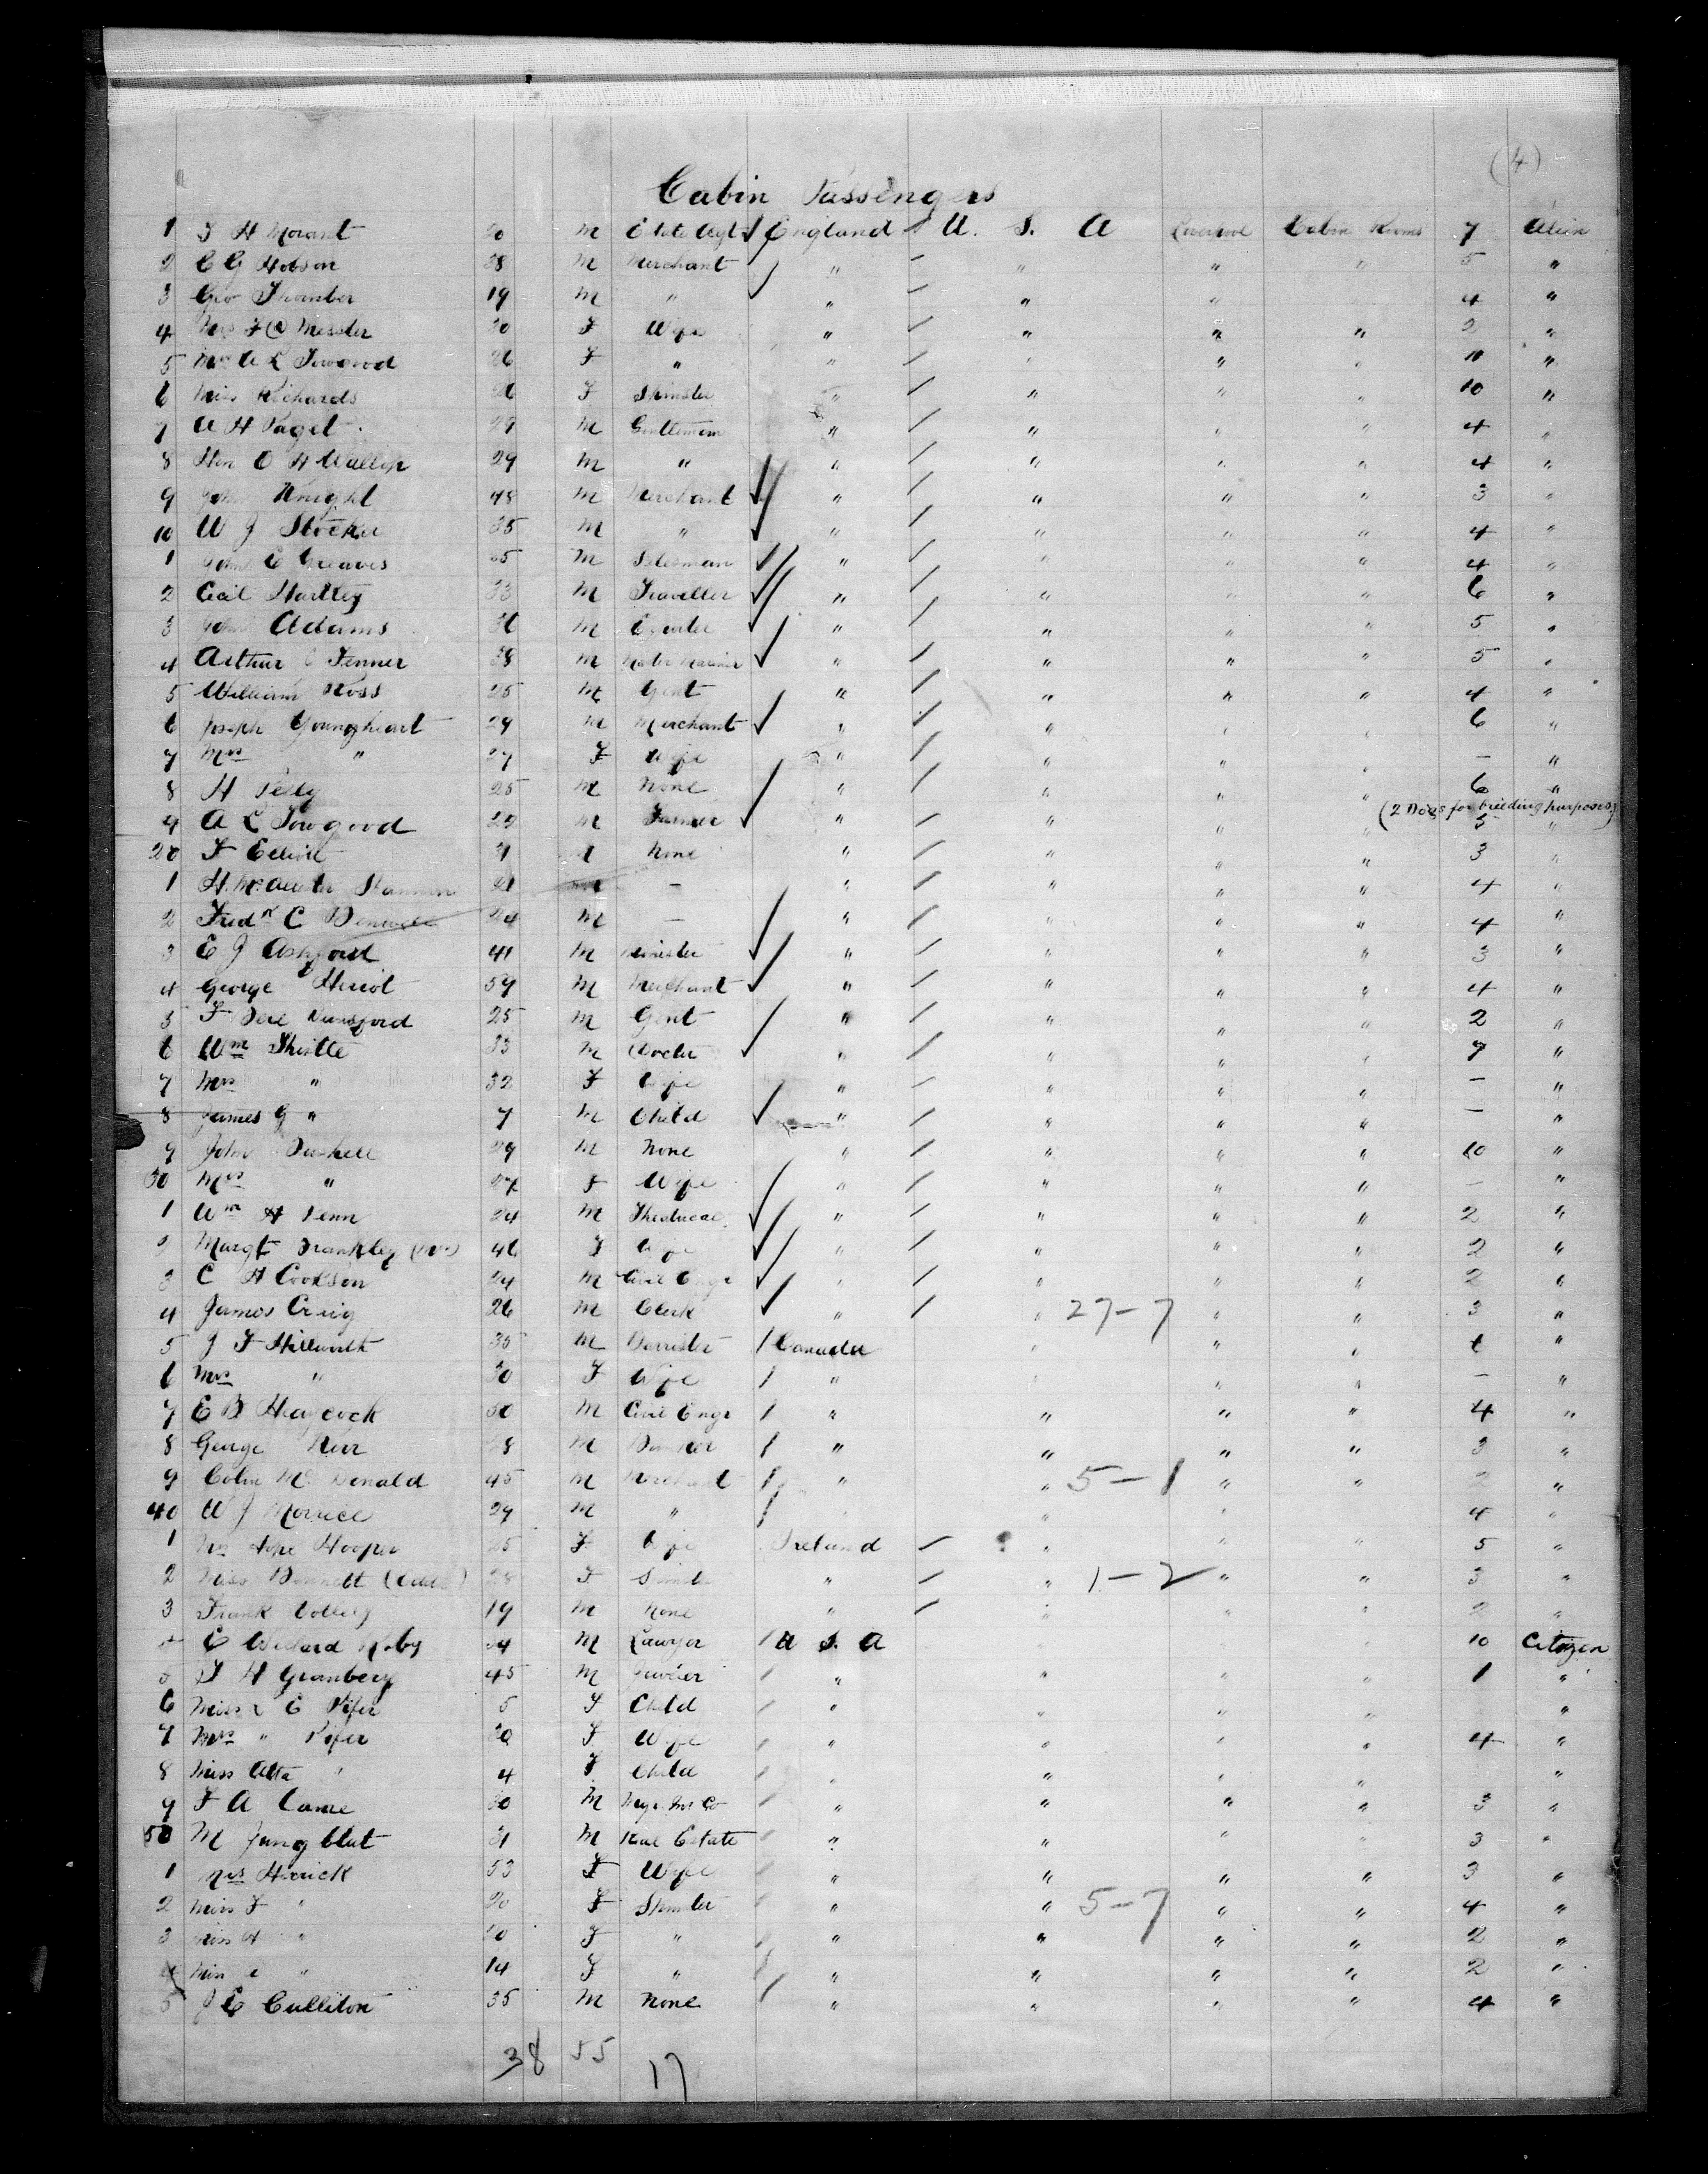 (4)
Cabin Passengers
1 F H Morant M Estate Agt England U. S. A Liverpool Cabin Rooms 7 Alien
2 C G Hobson 28 M Merchant " " " " 5 "
3 Geo 19 M " " " " 4 "
4 Mrs 30 F Wife " " " " 2 "
5 Mrs A L Towgood 26 F " " " " "
6 Miss Richards 26 F Spinster " " " " 10 "
7 A H Paget 29 M Gentleman " " " " 4 "
8 Hon O H Wallop 29 M " " " " " 4 "
9 John Knight 48 M Merchant " " " " 3 "
10 W J Stocker 35 M " " " " " 4 "
1 John C Greaves M Salesman " " " " 4 "
2 Cecil Hartley 33 M Traveller " " " " 6 "
3 John Adams M " " " " 5 "
4 Arthur Fenner 38 M Master Mariner " " " " 5 "
5 William Ross 25 M Gent " " " " 4 "
6 Joseph Youngheart 29 M Merchant " " " " 6 "
7 Mrs " 27 F Wife " " " " - "
8 H 25 M None " " " " 6 "
(2 Dogs for breeding purposes)
9 A L Towgood 29 M Farmer " " " " 5 "
20 F Elliott None " " " " 3 "
1 21 - " " " " 4 "
2 Fredk C 24 M - " " " " 4 "
3 E J Ashford 41 M Minister " " " " 3 "
4 George Heriot 59 M Merchant " " " " 4 "
5 F 25 M Gent " " " " 2 "
6 Wm 33 M Doctor " " " " 7 "
7 Mrs " 32 F Wife " " " " - "
8 James G " 7 M Child " " " " - "
9 John 29 M None " " " " 10 "
30 Mrs " F Wife " " " " - "
1 Wm H Penn 24 M Theatrical " " " " 2 "
2 Margt Frankley (Mrs) 46 F Wife " " " " 2 "
3 C H Cookson 24 M Civil Engr " " " " 2 "
4 James Craig 26 M Clerk " " 27-7 " " 3 "
5 J F 35 M Barrister Canada " " " "
6 Mrs " 30 F Wife " " " " - "
7 E B Haycock 30 M Civil Engr " " " " 4 "
8 George M Banker " " " " 3 "
9 Colin McDonald 45 M Merchant " " 5-1 " " 2 "
40 W J Morrice 29 M " " " 4 "
1 Mrs Hooper 25 F Wife Ireland " " " 5 "
2 Miss Bennett 28 F Spinster " " 1-2 " " 3 "
3 Frank 19 M None " " " " 2 "
4 E M Lawyer U S A 10 Citizen
5 H Granbery 45 M " " " " 1 "
6 Miss E Pifer 5 F Child " " " " "
7 Mrs " Pifer F Wife " " " " 4 "
8 Miss Alta " 4 F Child " " " " "
9 F A Came 30 M " " " " 3 "
50 M Jungblut 31 M Real Estate " " " " 3 "
1 Mrs Herrick 53 F Wife " " " " 3 "
2 Miss F " 20 F Spinster " " 5-7 " " 4 "
3 Miss " 20 F " " " " " 2 "
4 Miss " 14 F " " " " " 2 "
5 J E Culliton 35 M None " " " " 4 "
38 55
17